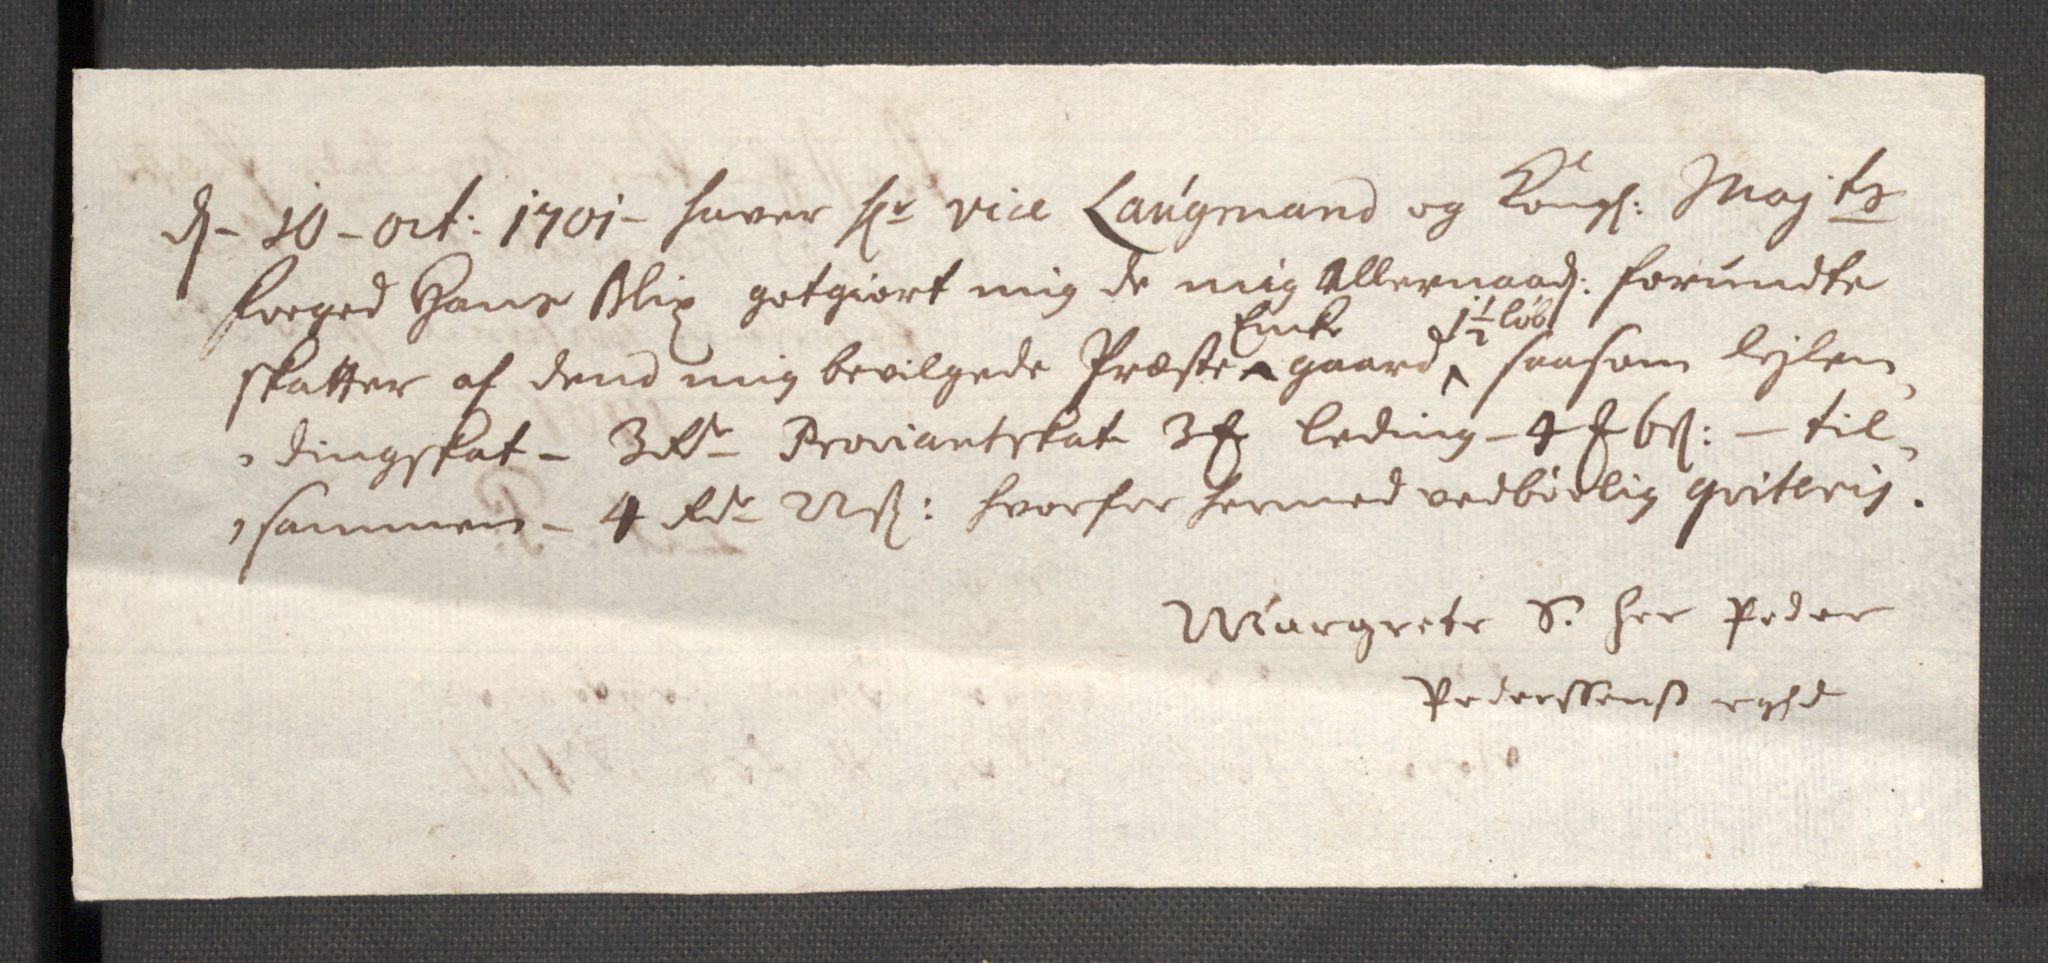 d - 10 - oct: 1701 - haver hr vice Laugmand og Kongl: Majtz
foeged Hans Blix gotgiort mig de mig Allernaad: forundte
skatter af dend mig bevilgede Præste Encke gaard 1½ løb saasom leylen
dingskat - 3 Rdr Proviantskat 3 leding - 6ß: - til
sammen - 4 Rdr 22ß: hvorfor hermed vedbørlig qviteris.
Margrete S. her Peder
Pederssenß